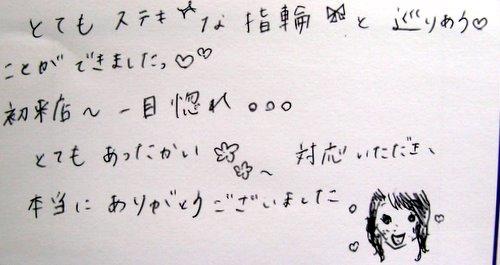 とても ステキ☆な 指輪 と 巡りあう♡
ことが できました。♡♡
初来店～ 一目惚れ 。。。
とても あったかい ～ 対応いただき、
本当に ありがとうございました。